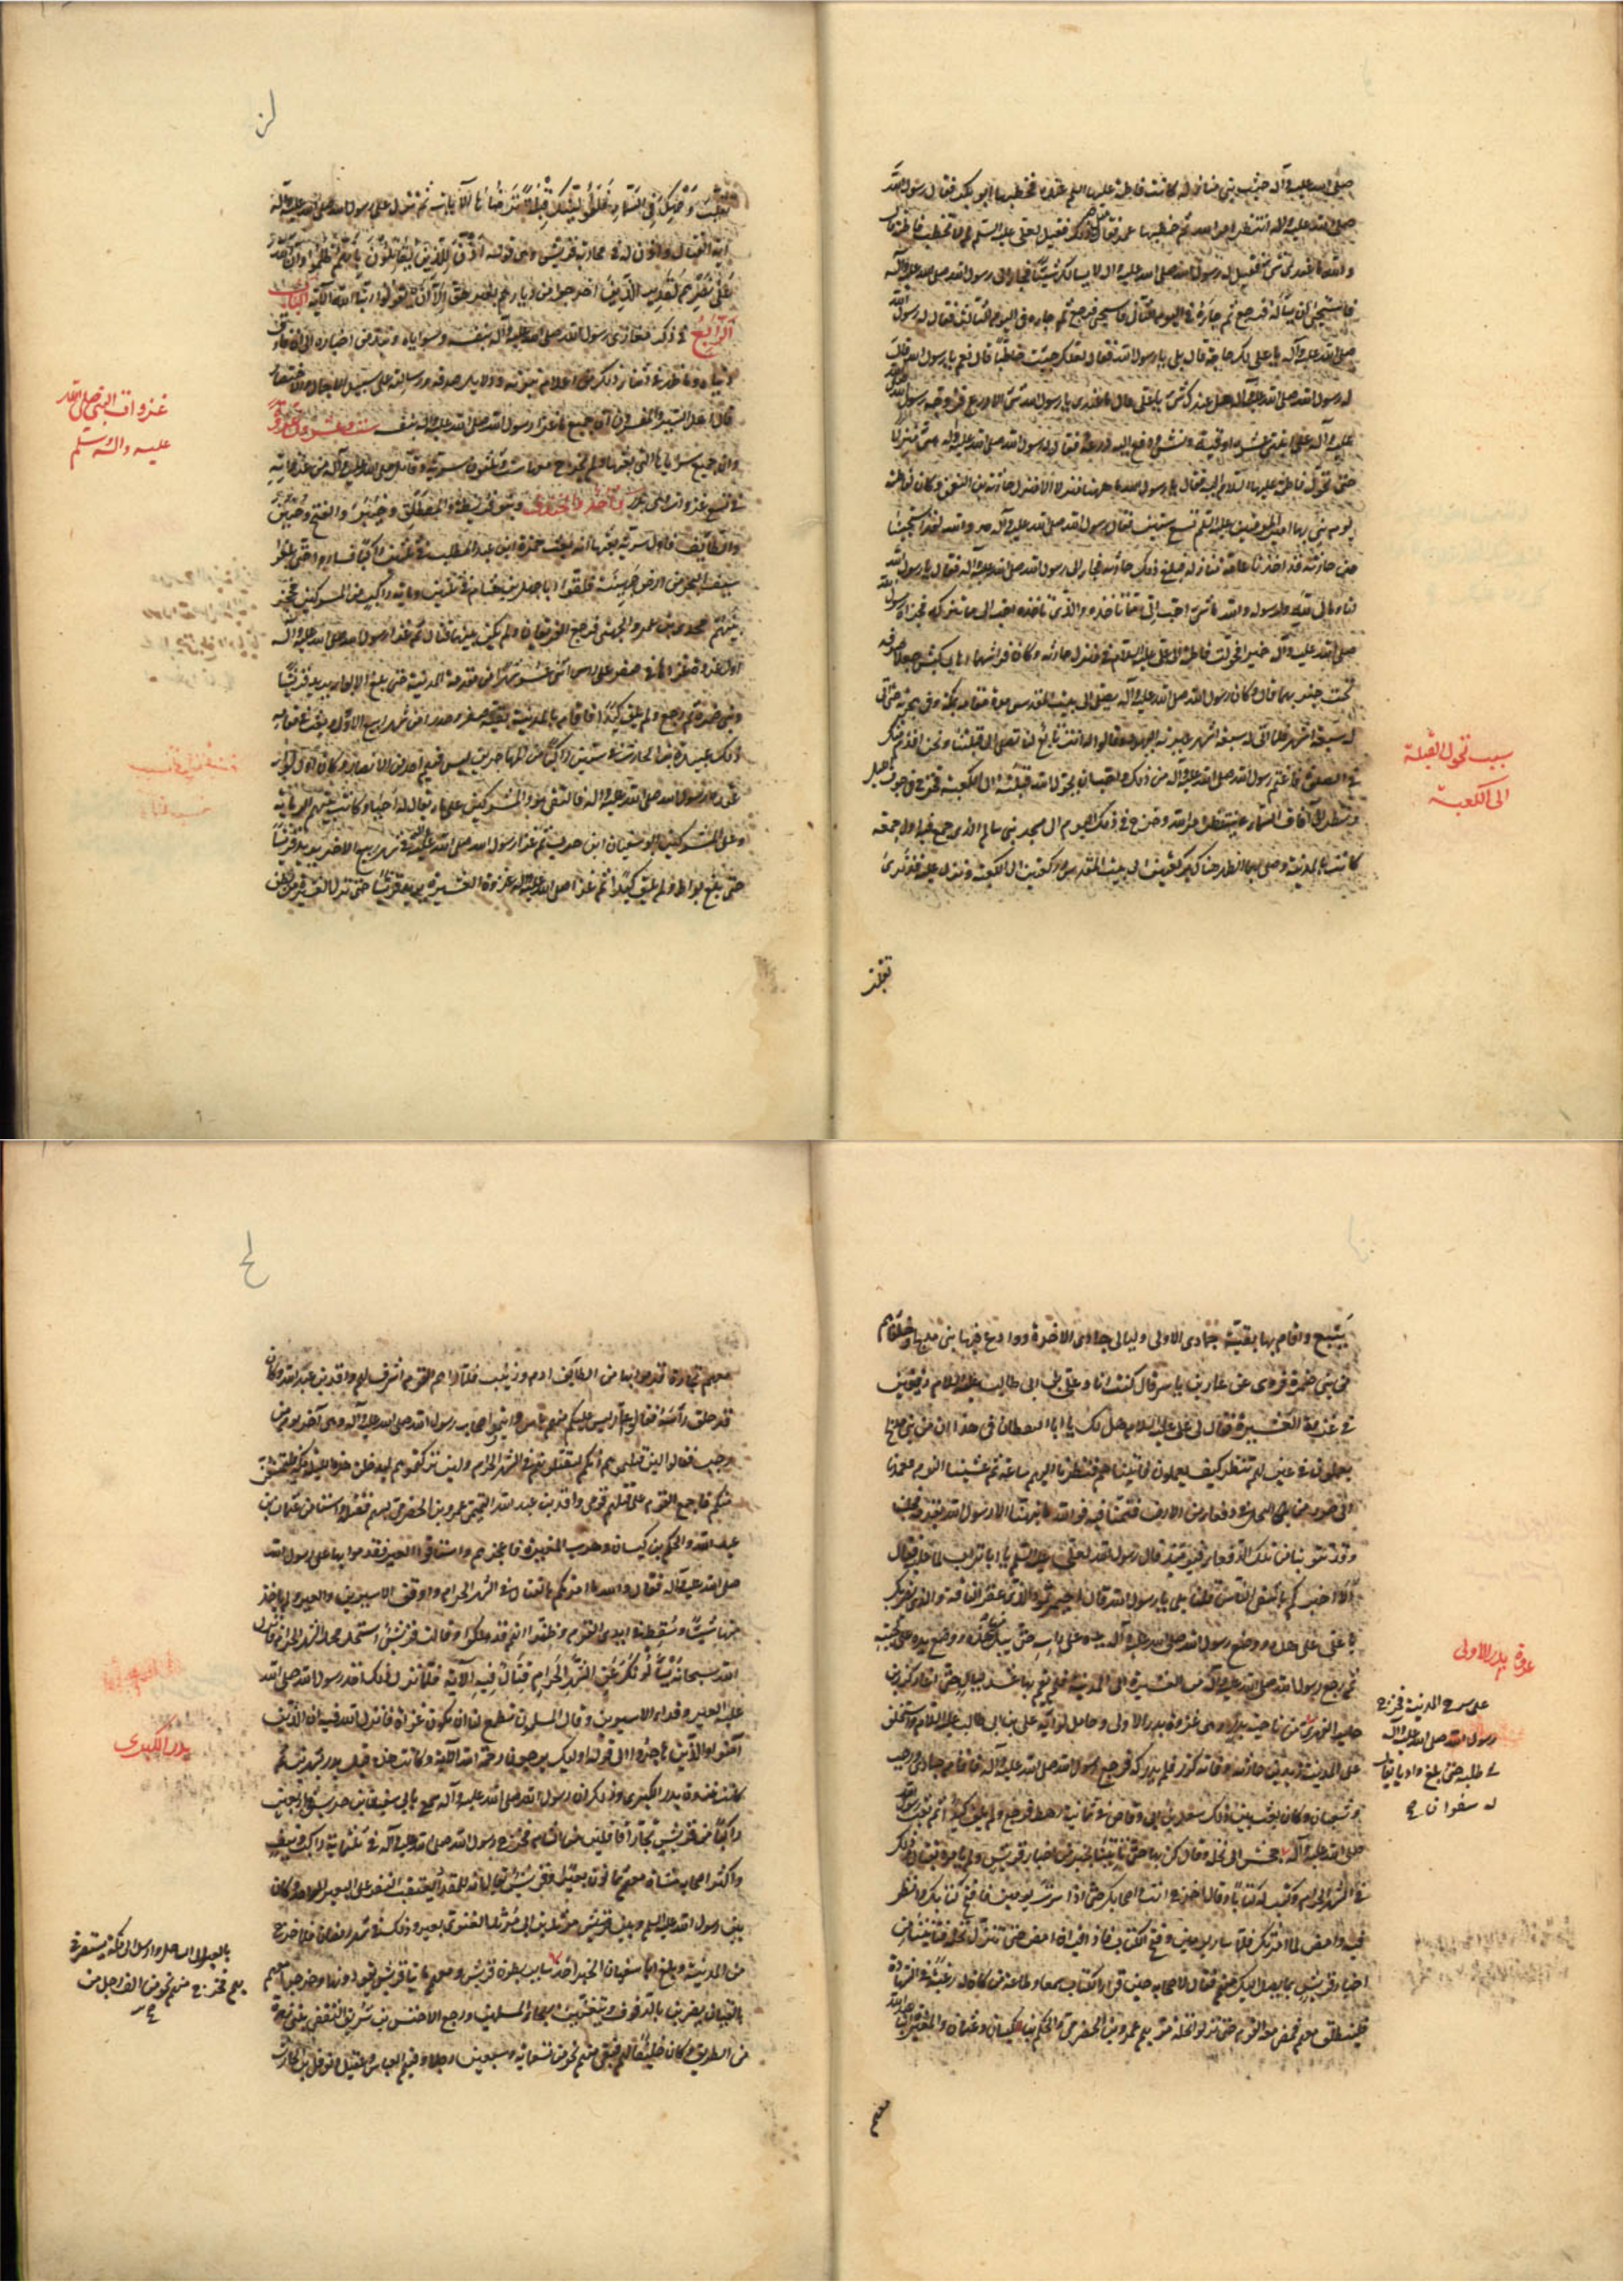 صلى الله عليه وآله حيث بنى منازله كانت فاطمة عليها السلم عنده فخطبها ابو بكر فقال رسول الله
صلى الله عليه وآله انتظر امر الله ثم خطبها عمر فقال مثل ذلك فقيل لعلي عليه السلم لم لا تخطب فاطمة فقال
والله ما عندي شيء فقيل له ان رسول الله صلى الله عليه وآله لا يسألك شيئا فجاء الى رسول الله صلى الله عليه وآله
فاستحيى ان يسأله فرجع ثم جاءه في اليوم الثاني فاستحيى فرجع ثم جاءه في اليوم الثالث فقال له رسول الله
صلى الله عليه وآله يا علي ألك حاجة قال بلى يا رسول الله فقال لعلك جئت خاطبا قال نعم يا رسول الله قال
له رسول الله صلى الله عليه وآله هل عندك شيء يا علي قال ما عندي يا رسول الله شيء الا درعي فزوجه رسول الله
صلى الله
عليه وآله على اثنتي عشرة اوقية ونش ودفع اليه درعه فقال له رسول الله صلى الله عليه وآله هيئ منزلا
حتى تحول فاطمة عليها السلام اليه فقال يا رسول الله ما ههنا منزل الا منزل حارثة بن النعمن وكان لفاطمة
يوم بنى بها امير المؤمنين عليه السلم تسع سنين فقال رسول الله صلى الله عليه وآله والله لقد استحيينا
من حارثة قد اخذنا عامة منازله فبلغ ذلك حارثة فجاء الى رسول الله صلى الله عليه وآله فقال يا رسول الله
انا ومالي لله ولرسوله والله ما شيء احب الي مما تأخذه والذي تأخذه احب الي مما تتركه فجزاه رسول الله
صلى الله عليه وآله خيرا فحولت فاطمة الى علي عليه السلام في منزل حارثة وكان فراشهما اهاب كبش جعلا صوفه
تحت جنوبهما قال وكان رسول الله صلى الله عليه وآله يصلي الى بيت المقدس مدة مقامه بمكة وفي هجرته حتى اتى
له سبعة اشهر فلما اتى له سبعة اشهر عيرته اليهود وقالوا له انت تابع لنا تصلي الى قبلتنا ونحن اقدم منك
في الصلوة فاغتم رسول الله صلى الله عليه وآله من ذلك واحب ان يحول الله قبلته الى الكعبة فخرج في جوف الليل
ونظر الى آفاق السماء ينتظر امر الله وخرج في ذلك اليوم الى مسجد بني سالم الذي جمع فيه اول جمعة
كانت بالمدينة وصلى بهم الظهر هناك ركعتين الى بيت المقدس وركعتين الى الكعبة ونزل عليه قد نرى
سبب تحول القبلة
الى الكعبة
تقلب
لز
تقلب وجهك في السماء فلنولينك قبلة ترضاها الآيات ثم نزل على رسول الله صلى الله عليه وآله
آية القتال واذن له في محاربة قريش وهي قوله اذن للذين يقاتلون بانهم ظلموا وان الله
على نصرهم لقدير الذين اخرجوا من ديارهم بغير حق الا ان يقولوا ربنا الله الآية الباب
الرابع في ذكر مغازي رسول الله صلى الله عليه وآله بنفسه وسراياه ونبذ من اخباره الى ان فارق
قال اهل السير والمفسرون ان جميع ما غزا رسول الله صلى الله عليه وآله بنفسه ست وعشرون غزوة
وان جميع سراياه التي بعثها ولم يخرج معها ست وثلثون سرية وقاتل صلى الله عليه وآله من غزواته
في تسع غزوات وهي بدر واحد والخندق وبنو قريظة والمصطلق وخيبر والفتح وحنين
والطائف فاول سرية بعثها انه بعث حمزة ابن عبد المطلب في ثلثين راكبا فساروا حتى بلغوا
سيف البحر من ارض جهينة فلقوا ابا جهل بن هشام في ثلثين ومائة راكب من المشركين فحجز
بينهم مجدي بن عمرو الجهني فرجع الفريقان ولم يكن بينهما قتال ثم غزا رسول الله صلى الله عليه وآله
اول غزوة غزاها في صفر على رأس اثني عشر شهرا من مقدمه المدينة حتى بلغ الابواء يريد قريشا
وبني ضمرة ثم رجع ولم يلق كيدا فاقام بالمدينة بقية صفر وصدرا من شهر ربيع الاول وبعث في مقامه
ذلك عبيدة بن الحارث في ستين راكبا من المهاجرين ليس فيهم احد من الانصار وكان اول لواء
عقده رسول الله صلى الله عليه وآله فالتقى هو والمشركين على ماء يقال له احيا وكانت بينهم الرماية
وعلى المشركين ابو سفيان ابن حرب ثم غزا رسول الله صلى الله عليه وآله في شهر ربيع الاخر يريد قريشا
حتى بلغ بواط ولم يلق كيدا ثم غزا صلى الله عليه وآله غزوة العشيرة يريد قريشا حتى نزل العشيرة من بطن
غزوات النبي صلى الله
عليه وآله وسلم
ينبع واقام بها بقية جمادى الاولى وليالي جمادى الاخرة ووادع فيها بني مدلج وحلفاءهم
من بني ضمرة فروى عن عمار بن ياسر قال كنت انا وعلي بن ابي طالب عليه السلام رفيقين
في غزوة العشيرة فقال لي علي عليه السلام هل لك يا ابا اليقظان في هذا النفر من بني مدلج
يعملون في عين لهم ننظر كيف يعملون فاتيناهم فنظرنا اليهم ساعة ثم غشينا النوم فعمدنا
الى صور من النخل في دقعاء من الارض فنمنا فيه فوالله ما نبهنا الا رسول الله بقدمه فجلسنا
وقد تتربنا من تلك الدقعاء فيومئذ قال رسول الله لعلي عليه السلم يا ابا تراب لما عليه فقال
الا اخبركم باشقى الناس قلنا بلى يا رسول الله قال احيمر ثمود الذي عقر الناقة والذي يضربك
يا علي على هذه ووضع رسول الله صلى الله عليه وآله يده على رأسه حتى يبل منها هذه ووضع يده على لحيته
ثم رجع رسول الله صلى الله عليه وآله من العشيرة الى المدينة فلم يقم بها عشر ليال حتى اغار كرز بن
جابر الفهري من ناحية بدر وهي غزوة بدر الاولى وحامل لوائه علي بن ابي طالب عليه السلام واستخلف
على المدينة زيد بن حارثة وفاته كرز فلم يدركه فرجع رسول الله صلى الله عليه وآله فاقام جمادى ورجب
وشعبان وكان بعث بين ذلك سعد بن ابي وقاص في ثمانية رهط فرجع ولم يلق كيدا ثم بعث رسول الله
صلى الله عليه وآله جحش الى نخلة وقال كن بها حتى تأتينا بخبر من اخبار قريش ولم يأمره بقتال وذلك
في الشهر الحرام وكتب له كتابا وقال اخرج انت واصحابك حتى اذا سرت يومين فافتح كتابك وانظر
فيه وامض لما امرتك فلما سار يومين وفتح الكتاب فاذا فيه ان امض حتى تنزل نخلة فتأتينا من
اخبار قريش بما يصل اليك منهم فقال لاصحابه حين قرأ الكتاب سمعا وطاعة من كان له رغبة في الشهادة
فلينطلق معي فمضى معه القوم حتى نزلوا نخلة فمر بهم عمرو بن الحضرمي والحكم بن كيسان وعثمان والمغيرة ابنا عبد الله
غزوة بدر الاولى
على سرح المدينة فخرج
رسول الله صلى الله عليه وآله
في طلبه حتى بلغ واديا يقال
له سفوان صح
معهم
لح
معهم تجارة قدموا بها من الطائف ادم وزبيب فلما رآهم القوم اشرف لهم واقد بن عبد الله وكان
قد حلق رأسه فقالوا عمار ليس عليكم منهم بأس وائتمر اصحاب رسول الله صلى الله عليه وآله وهي آخر يوم من
رجب فقالوا لئن قتلتموهم انكم لتقتلونهم في الشهر الحرام ولئن تركتموهم ليدخلن هذه الليلة مكة فليمتنعن
منكم فاجمع القوم على قتلهم فرمى واقد بن عبد الله التميمي عمرو بن الحضرمي بسهم فقتله واستأمن عثمان بن
عبد الله والحكم بن كيسان وهرب المغيرة فاعجزهم واستاقوا العير فقدموا بها على رسول الله
صلى الله عليه وآله فقال والله ما امرتكم بالقتال في الشهر الحرام واوقف الاسيرين والعير ولم يأخذ
منها شيئا وسقط في ايدي القوم وظنوا انهم قد هلكوا وقالت قريش استحل محمد الشهر الحرام فانزل
الله سبحانه يسألونك عن الشهر الحرام قتال فيه الآية فلما نزل ذلك اخذ رسول الله صلى الله
عليه العير وفداء الاسيرين وقال المسلمون نطمع لنا ان تكون غزاة فانزل الله فيهم ان الذين
آمنوا والذين هاجروا الى قوله اولئك يرجون رحمة الله الآية وكانت هذه قبل بدر بشهرين ثم
كانت غزوة بدر الكبرى وذلك ان رسول الله صلى الله عليه وآله سمع بابي سفيان بن حرب في اربعين
راكبا من قريش تجارا قافلين من الشام فخرج رسول الله صلى الله عليه وآله في ثلثمائة راكب ونيف
واكثر اصحابه مشاة معهم ثمانون بعيرا وفرس يقال انه للمقداد يعتقب النفر على البعير الواحد وكان
بين رسول الله عليه السلم وبين مرثد بن ابي مرثد الغنوي بعير وذلك في شهر رمضان فلما خرج
من المدينة وبلغ ابا سفيان الخبر اخذ بهزة قريش ومعهم مائتا فرس يقودونها وخرجوا معهم
بالقيان يضربن بالدفوف ويتغنين بهجاء المسلمين ورجع الاخنس بن شريق الثقفي ببني زهرة
من الطريق وكان حليفا لهم فبقي منهم نحو من تسعمائة وسبعين رجلا وفيهم العباس وعقيل ونوفل بن الحارث
بدر الكبرى